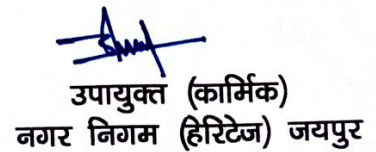 उपायुक्त (कार्मिक)
नगर निगम (हेरिटेज) जयपुर